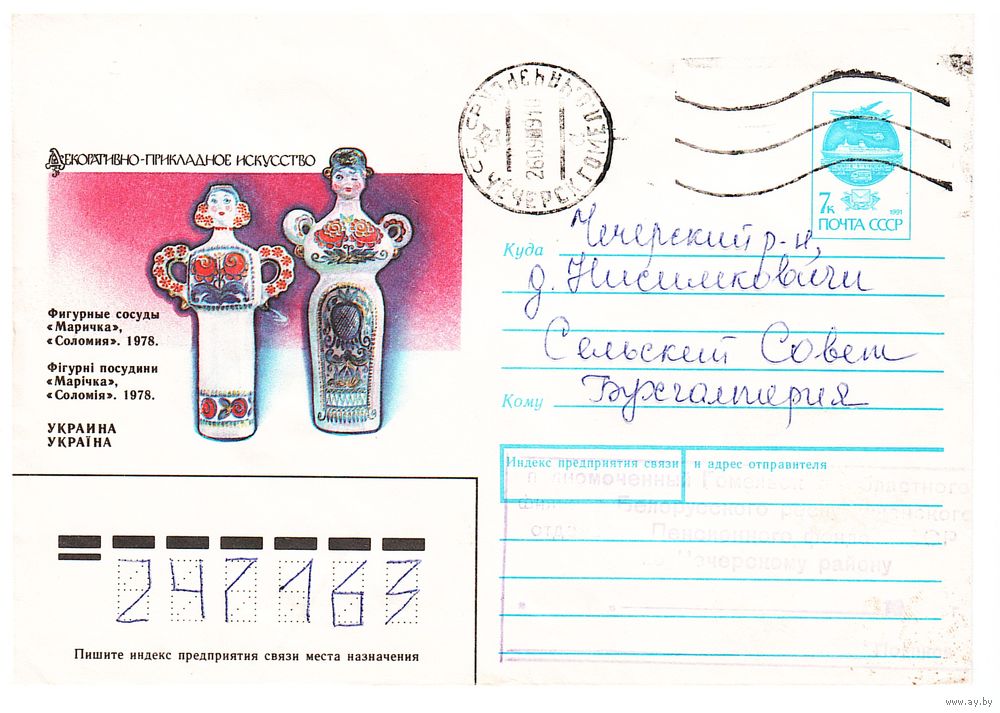 Декоративно-прикладное искусство
Фигурные сосуды
«Маричка»,
«Соломия». 1978.
Фігурні посудини
«Марічка»,
«Соломія». 1978.
УКРАИНА
УКРАЇНА
ЧЕЧЕРСК ГОМЕЛ
7к
1991
ПОЧТА СССР
Куда Чечерский р-н,
д. Нисимковичи
Сельский Совет
Кому Бухгалтерия
Индекс предприятия связи и адрес отправителя
Гомельской областного
Белорусского
Пенсионного
Чечерскому району
247163
Пишите индекс предприятия связи места назначения
www.ay.by